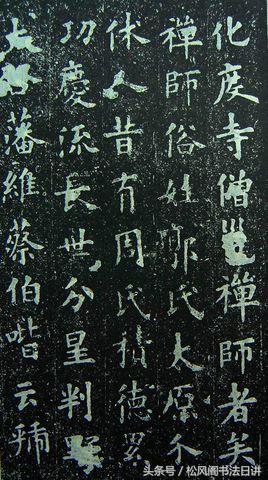 化度寺僧邕禪師者矣
禪師俗姓郭氏太原介
休人昔有周氏積德累
功慶流長世分星判野
藩維蔡伯喈云
头条号/松风阁书法日讲